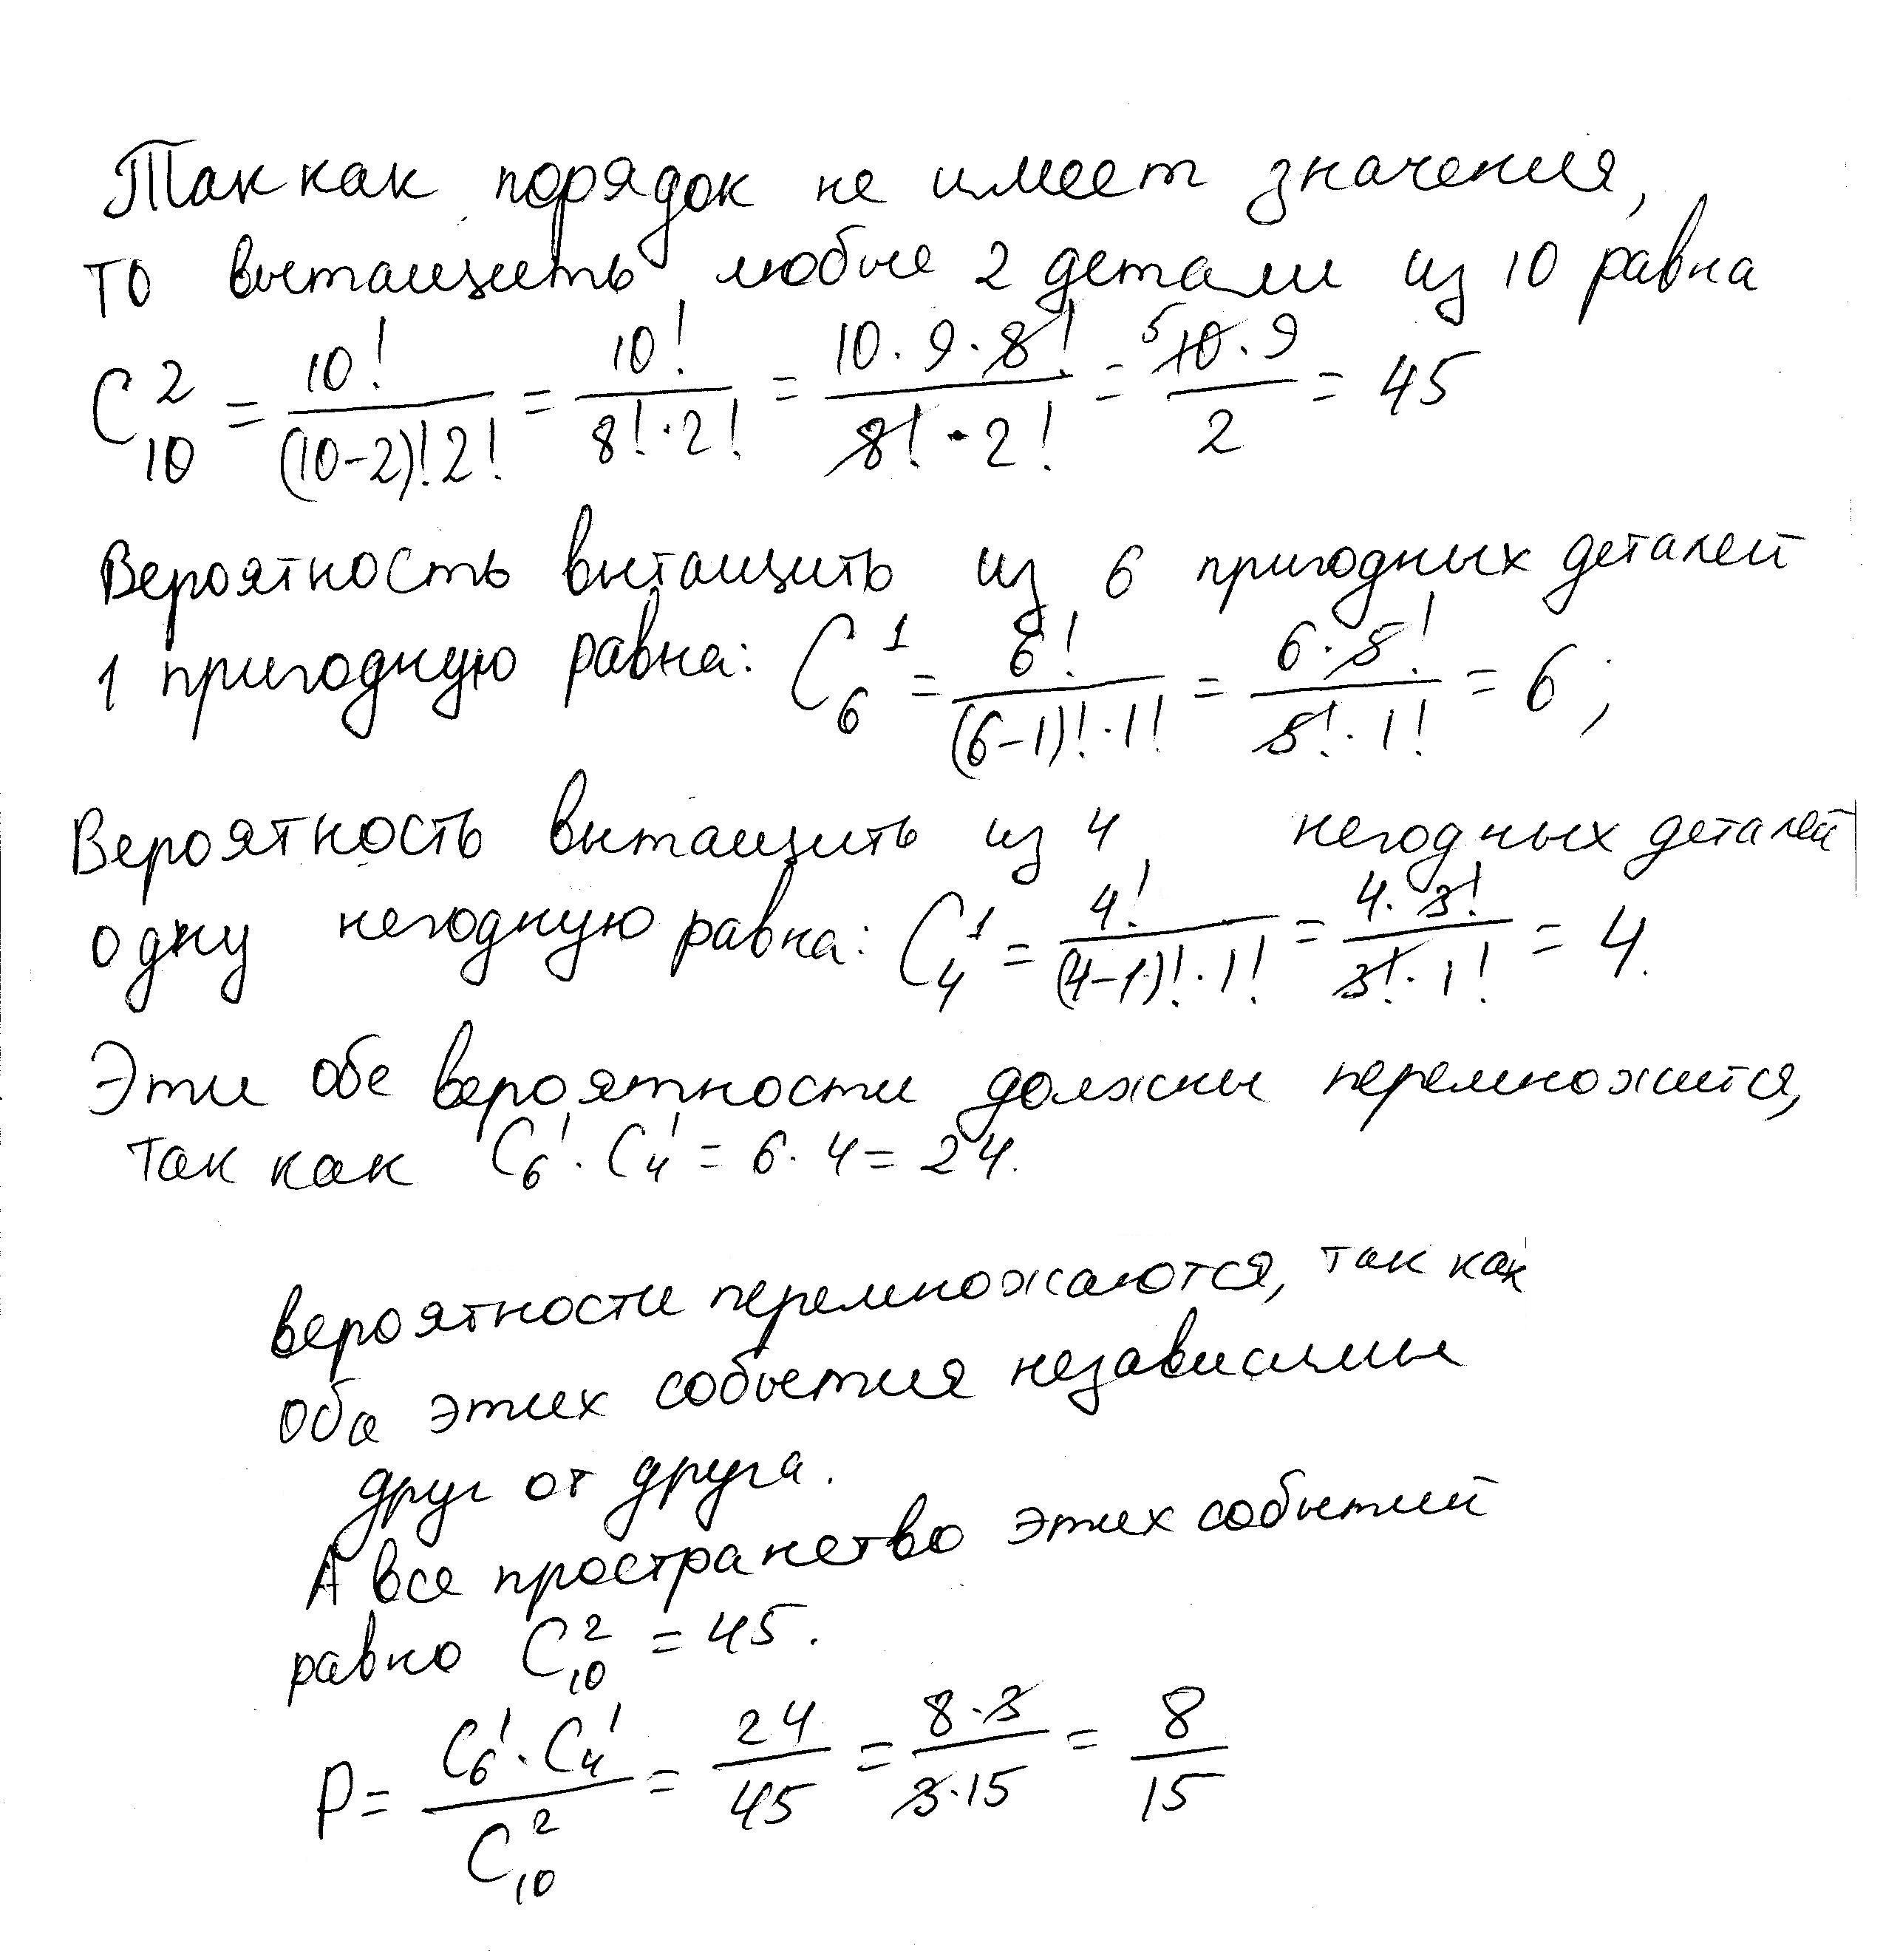 Так как порядок не имеет значения,
то вытащить любые 2 детали из 10 равна
C₁₀² = 10!/((10-2)!2!) = 10!/(8!·2!) = 10·9·8!/(8!·2!) = ⁵10·9/2 = 45
Вероятность вытащить из 6 пригодных деталей
1 пригодную равна: C₆¹ = 6!/((6-1)!·1!) = 6·5!/(5!·1!) = 6;
Вероятность вытащить из 4 негодных деталей
одну негодную равна: C₄¹ = 4!/((4-1)!·1!) = 4·3!/(3!·1!) = 4.
Эти обе вероятности должны перемножится,
так как C₆¹·C₄¹ = 6·4 = 24.
вероятности перемножаются, так как
оба этих события независимы
друг от друга.
А все пространство этих событий
равно C₁₀² = 45.
P = C₆¹·C₄¹/C₁₀² = 24/45 = 8·3/(3·15) = 8/15